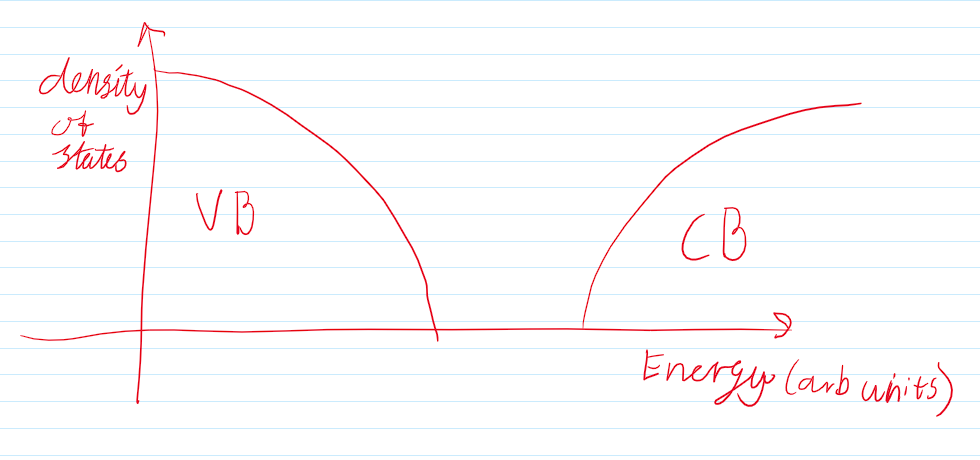 density
of
states
VB
CB
Energy (arb units)